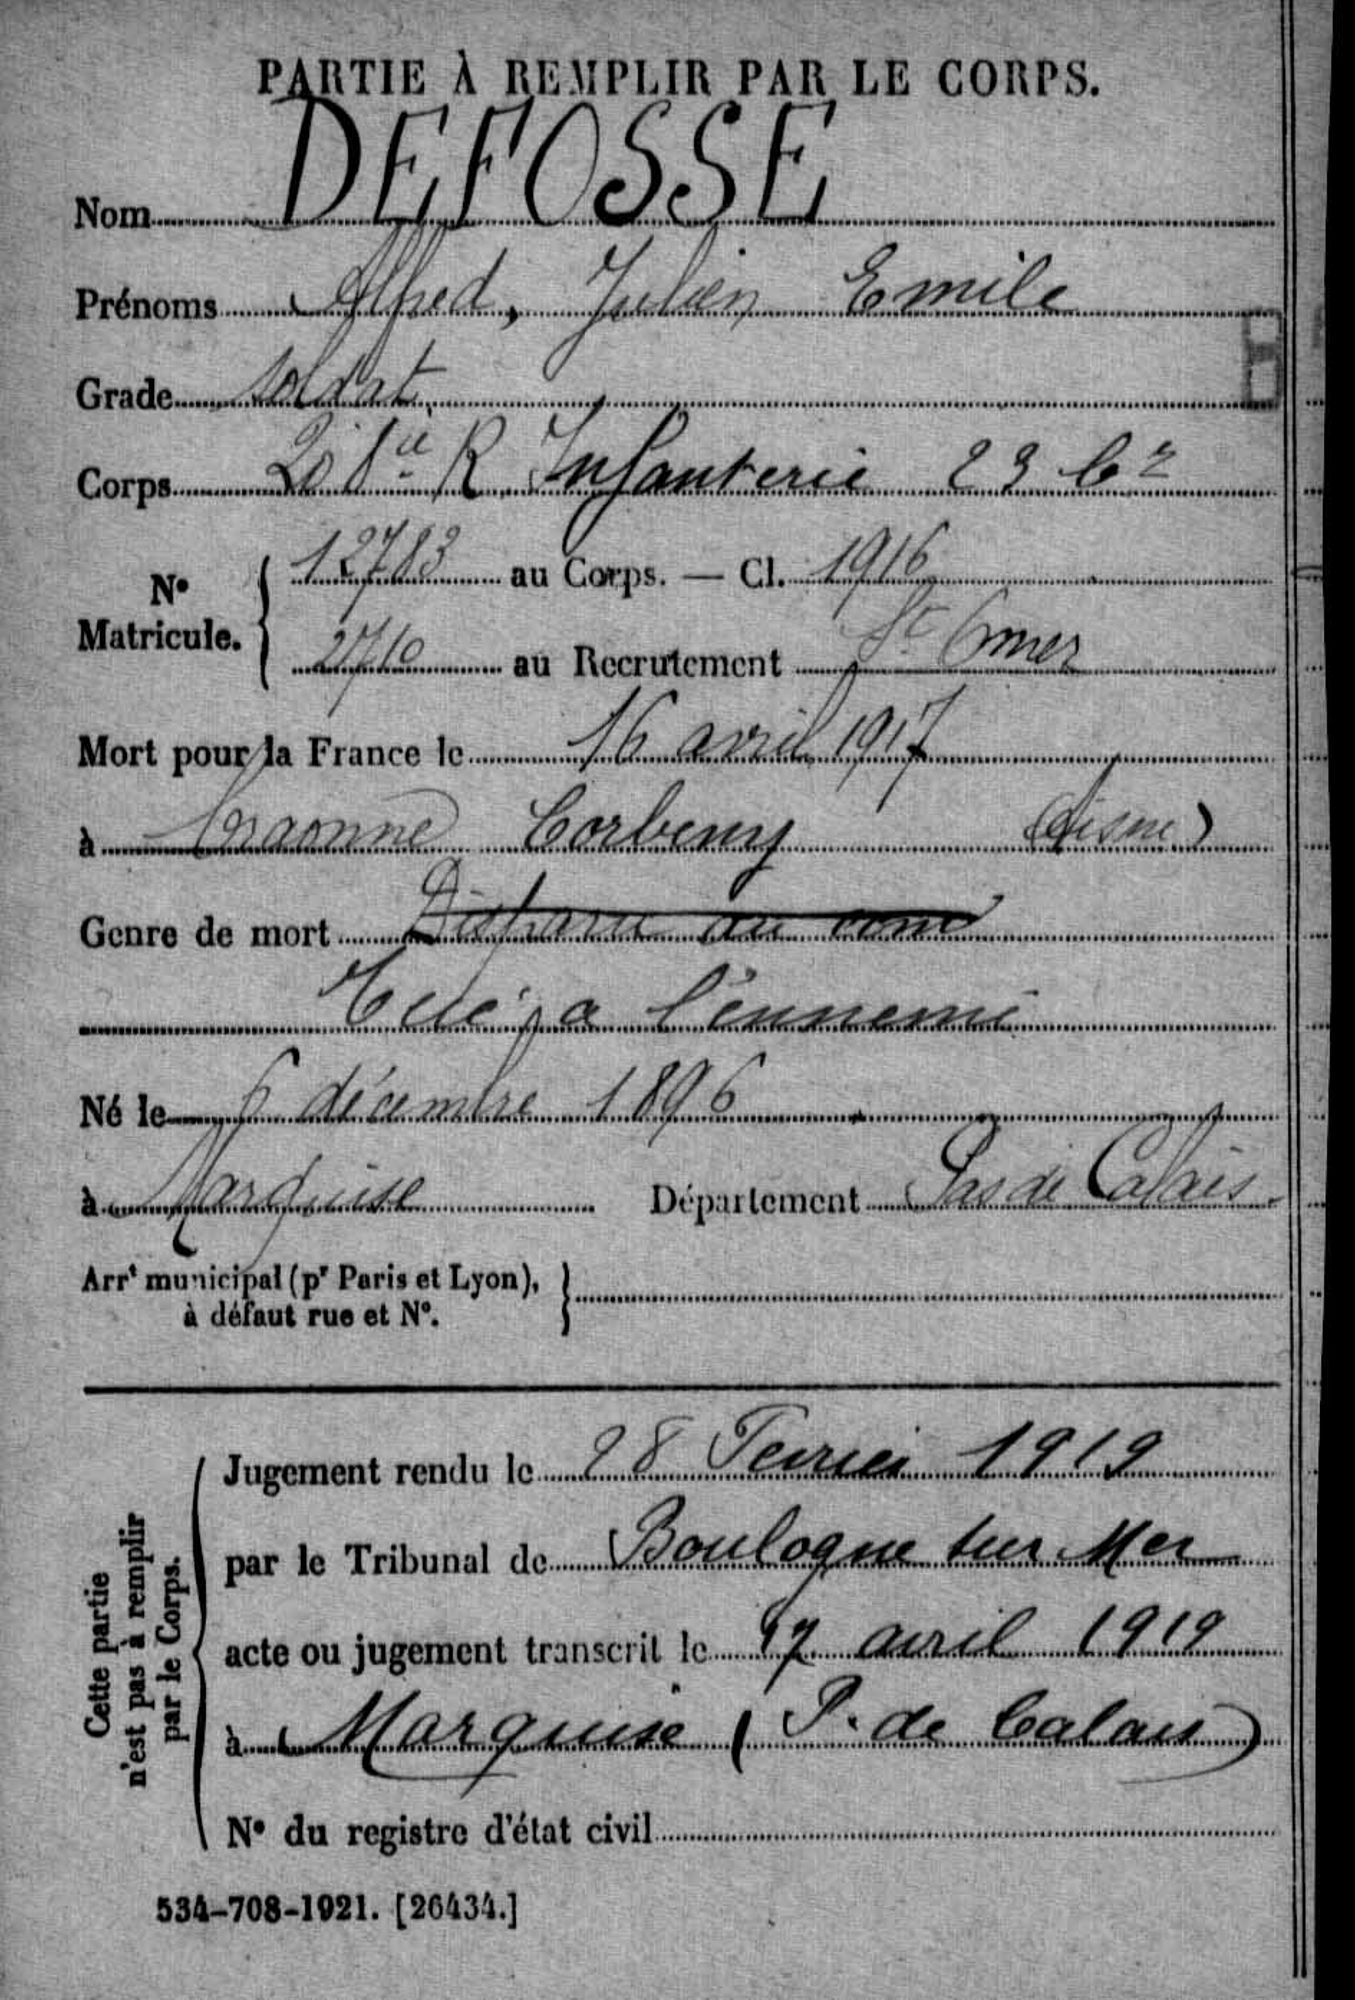 PARTIE À REMPLIR PAR LE CORPS.
Nom DEFOSSE
Prénoms Alfred, Julien Emile
Grade soldat
Corps 208e R Infanterie 23 Cie
N° Matricule. 12783 au Corps. — Cl. 1916
2710 au Recrutement St Omer
Mort pour la France le 16 avril 1917
à Craonne Corbeny (Aisne)
Genre de mort Disparu au
Tué à l'ennemi
Né le 6 décembre 1896
à Marquise Département Pas de Calais.
Arrt municipal (pr Paris et Lyon),
à défaut rue et N°.
Cette partie
n'est pas à remplir
par le Corps.
Jugement rendu le 28 Fevrier 1919
par le Tribunal de Boulogne sur Mer
acte ou jugement transcrit le 17 avril 1919
à Marquise (P. de Calais)
N° du registre d'état civil
534-708-1921. [26434.]